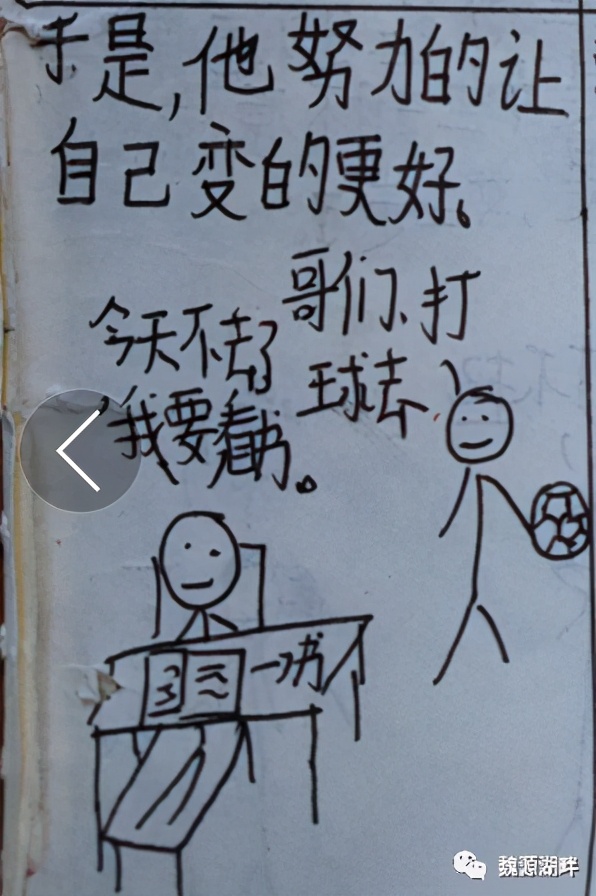 于是,他努力的让
自己变的更好。
哥们、打
球去
今天不去了
我要看书。
书
魏源湖畔